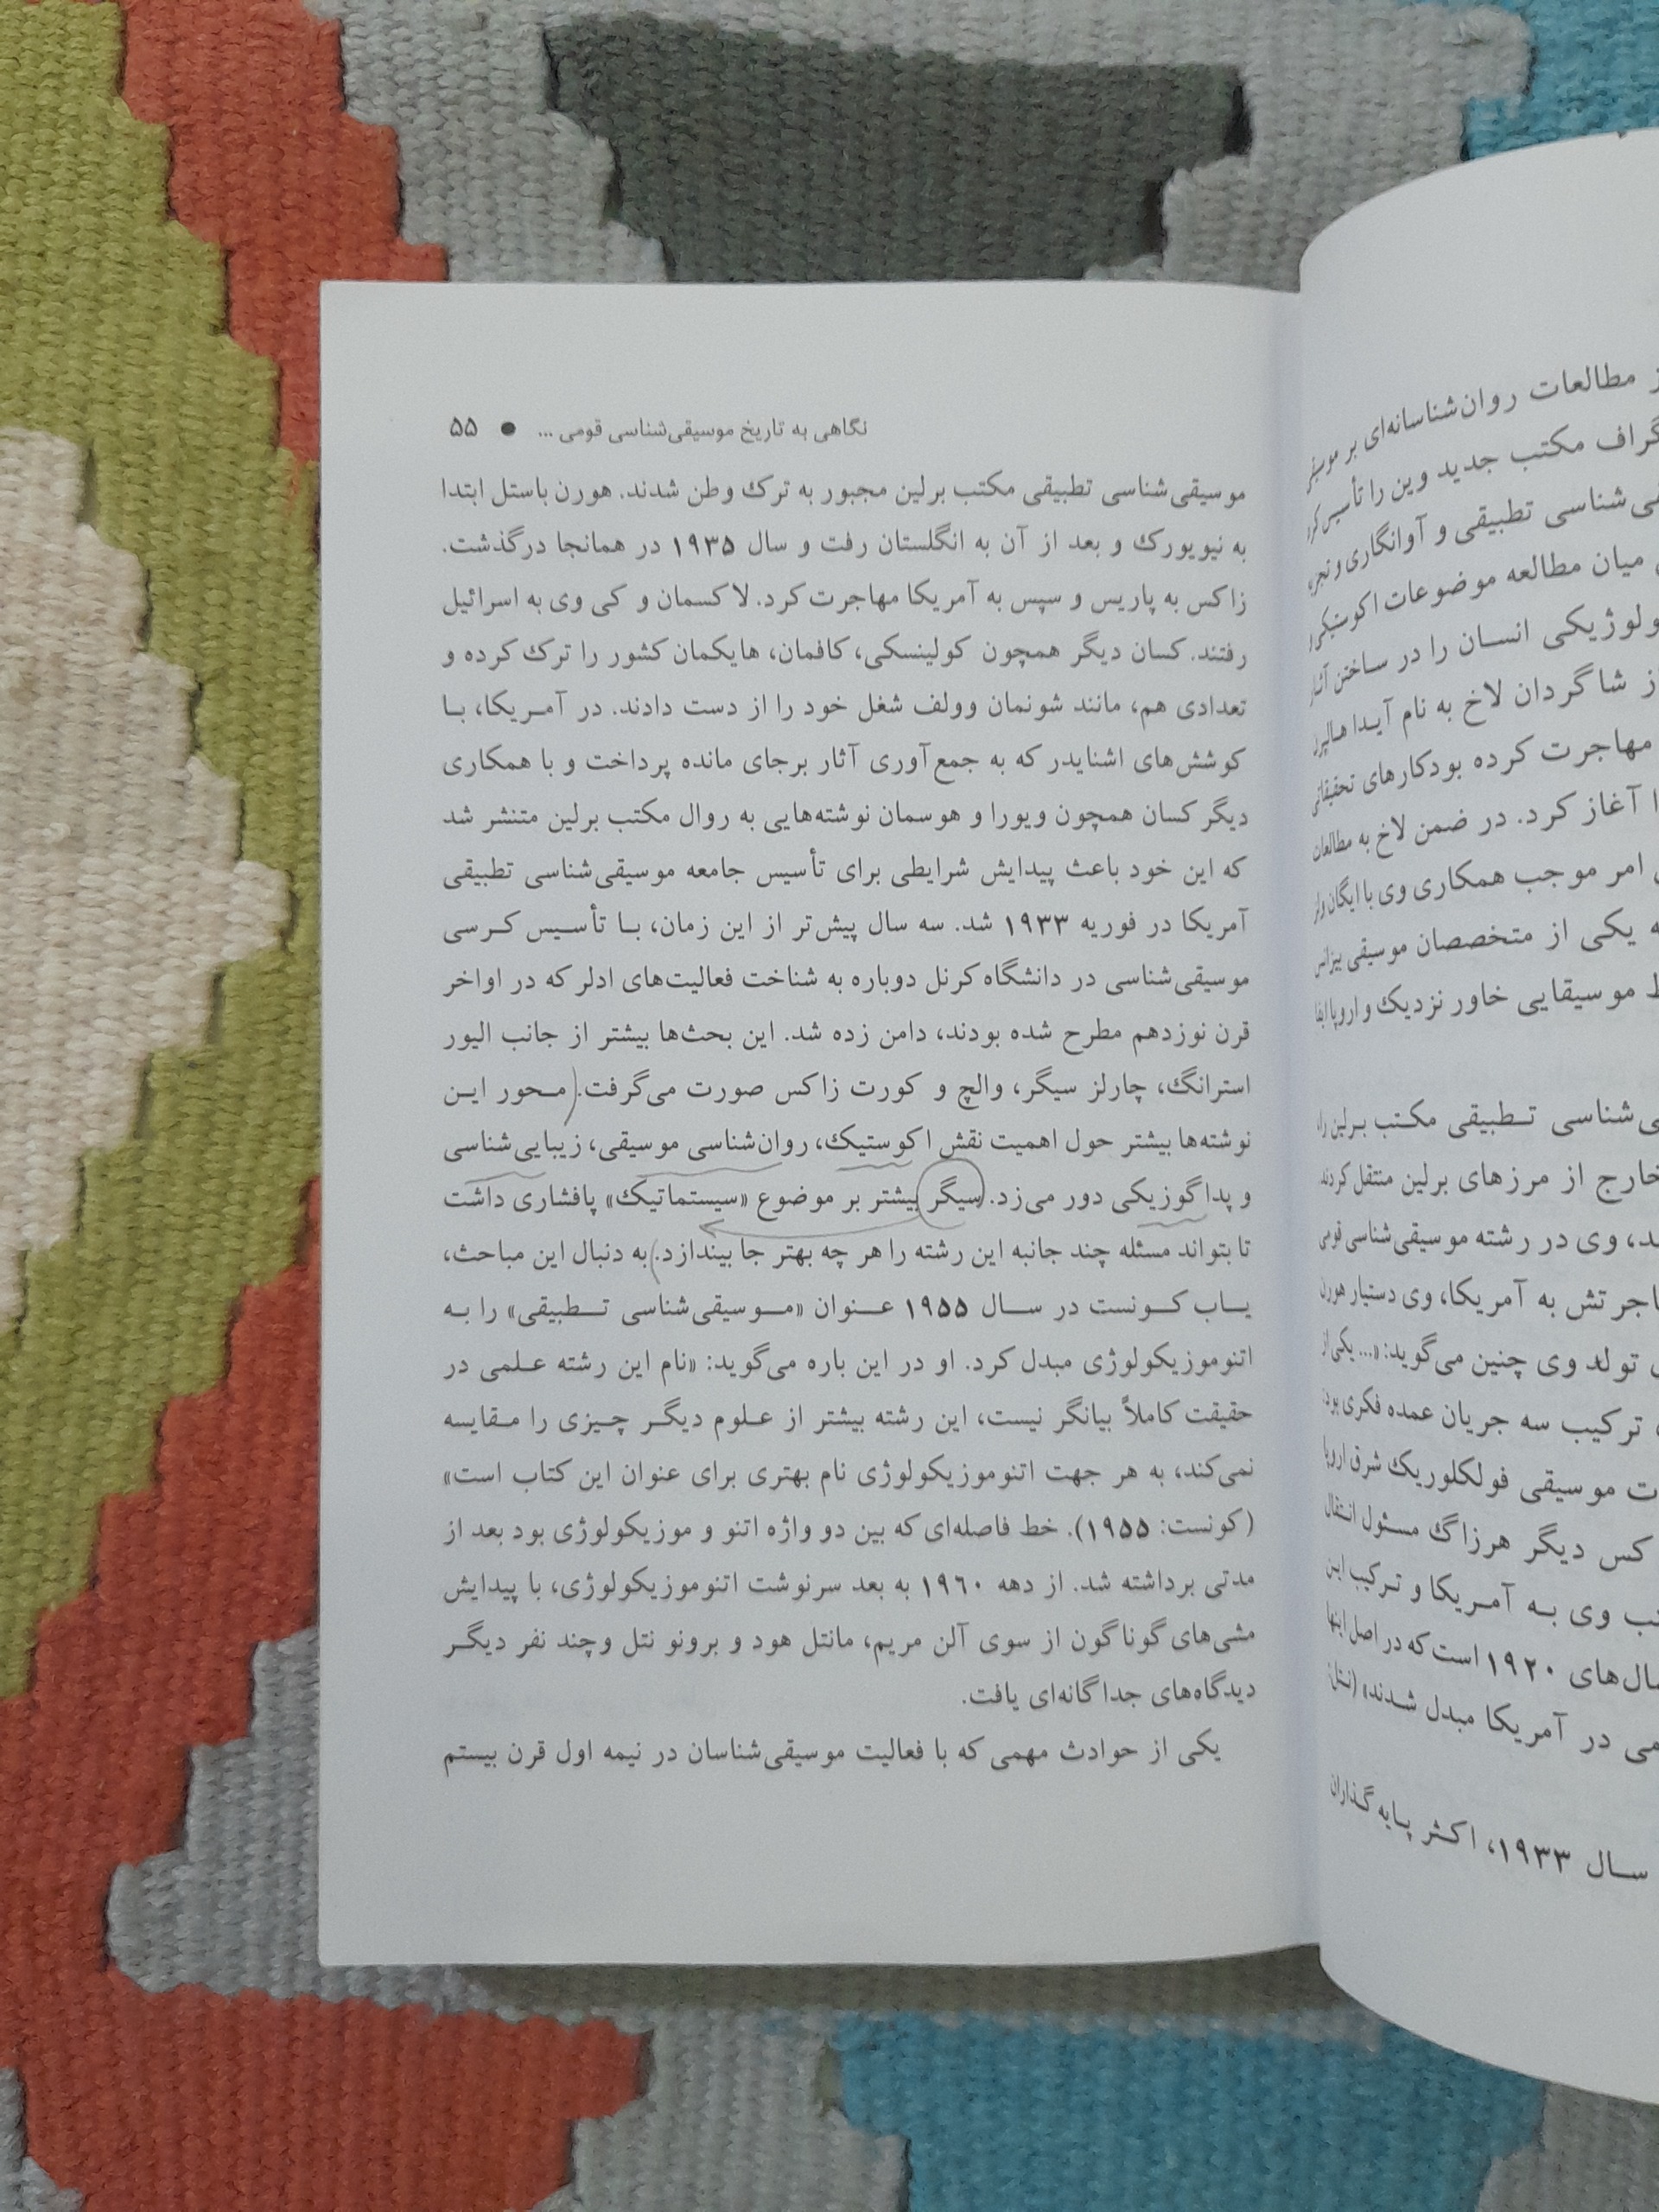 نگاهی به تاریخ موسیقی‌شناسی قومی ... ● ۵۵
موسیقی‌شناسی تطبیقی مکتب برلین مجبور به ترک وطن شدند. هورن باستل ابتدا
به نیویورک و بعد از آن به انگلستان رفت و سال ۱۹۳۵ در همانجا درگذشت.
زاکس به پاریس و سپس به آمریکا مهاجرت کرد. لاکسمان و کی وی به اسرائیل
رفتند. کسان دیگر همچون کولینسکی، کافمان، هایکمان کشور را ترک کرده و
تعدادی هم، مانند شونمان وولف شغل خود را از دست دادند. در آمریکا، با
کوشش‌های اشنایدر که به جمع‌آوری آثار برجای مانده پرداخت و با همکاری
دیگر کسان همچون ویورا و هوسمان نوشته‌هایی به روال مکتب برلین متنشر شد
که این خود باعث پیدایش شرایطی برای تأسیس جامعه موسیقی‌شناسی تطبیقی
آمریکا در فوریه ۱۹۳۳ شد. سه سال پیش‌تر از این زمان، با تأسیس کرسی
موسیقی‌شناسی در دانشگاه کرنل دوباره به شناخت فعالیت‌های ادلر که در اواخر
قرن نوزدهم مطرح شده بودند، دامن زده شد. این بحث‌ها بیشتر از جانب الیور
استرانگ، چارلز سیگر، والچ و کورت زاکس صورت می‌گرفت. (محور این
نوشته‌ها بیشتر حول اهمیت نقش اکوستیک، روان‌شناسی موسیقی، زیبایی‌شناسی
و پداگوزیکی دور می‌زد. سیگر بیشتر بر موضوع «سیستماتیک» پافشاری داشت
تا بتواند مسئله چند جانبه این رشته را هر چه بهتر جا بیندازد.) به دنبال این مباحث،
یاب کونست در سال ۱۹۵۵ عنوان «موسیقی‌شناسی تطبیقی» را به
اتنوموزیکولوژی مبدل کرد. او در این باره می‌گوید: «نام این رشته علمی در
حقیقت کاملاً بیانگر نیست، این رشته بیشتر از علوم دیگر چیزی را مقایسه
نمی‌کند، به هر جهت اتنوموزیکولوژی نام بهتری برای عنوان این کتاب است»
(کونست: ۱۹۵۵). خط فاصله‌ای که بین دو واژه اتنو و موزیکولوژی بود بعد از
مدتی برداشته شد. از دهه ۱۹۶۰ به بعد سرنوشت اتنوموزیکولوژی، با پیدایش
مشی‌های گوناگون از سوی آلن مریم، مانتل هود و برونو نتل وچند نفر دیگر
دیدگاه‌های جداگانه‌ای یافت.
یکی از حوادث مهمی که با فعالیت موسیقی‌شناسان در نیمه اول قرن بیستم
مطالعات روان‌شناسانه‌ای بر
مکتب جدید وین را تأسیس
شناسی تطبیقی و آوانگاری و
میان مطالعه موضوعات
انسان را در ساختن
شاگردان لاخ به نام آیدا
مهاجرت کرده بودکارهای
آغاز کرد. در ضمن لاخ به
امر موجب همکاری وی با
یکی از متخصصان موسیقی
موسیقایی خاور نزدیک و اروپا
شناسی تطبیقی مکتب برلین
از مرزهای برلین منتقل کردند.
وی در رشته موسیقی‌شناسی قومی
به آمریکا، وی دستیار
تولد وی چنین می‌گوید: «... یکی از
ترکیب سه جریان عمده فکری
موسیقی فولکلوریک شرق اروپا
کس دیگر هرزاگ مسئول انتقال
وی به آمریکا و ترکیب این
۱۹۲۰ است که در اصل
در آمریکا مبدل شدند»
سال ۱۹۳۳، اکثر پایه گذاران